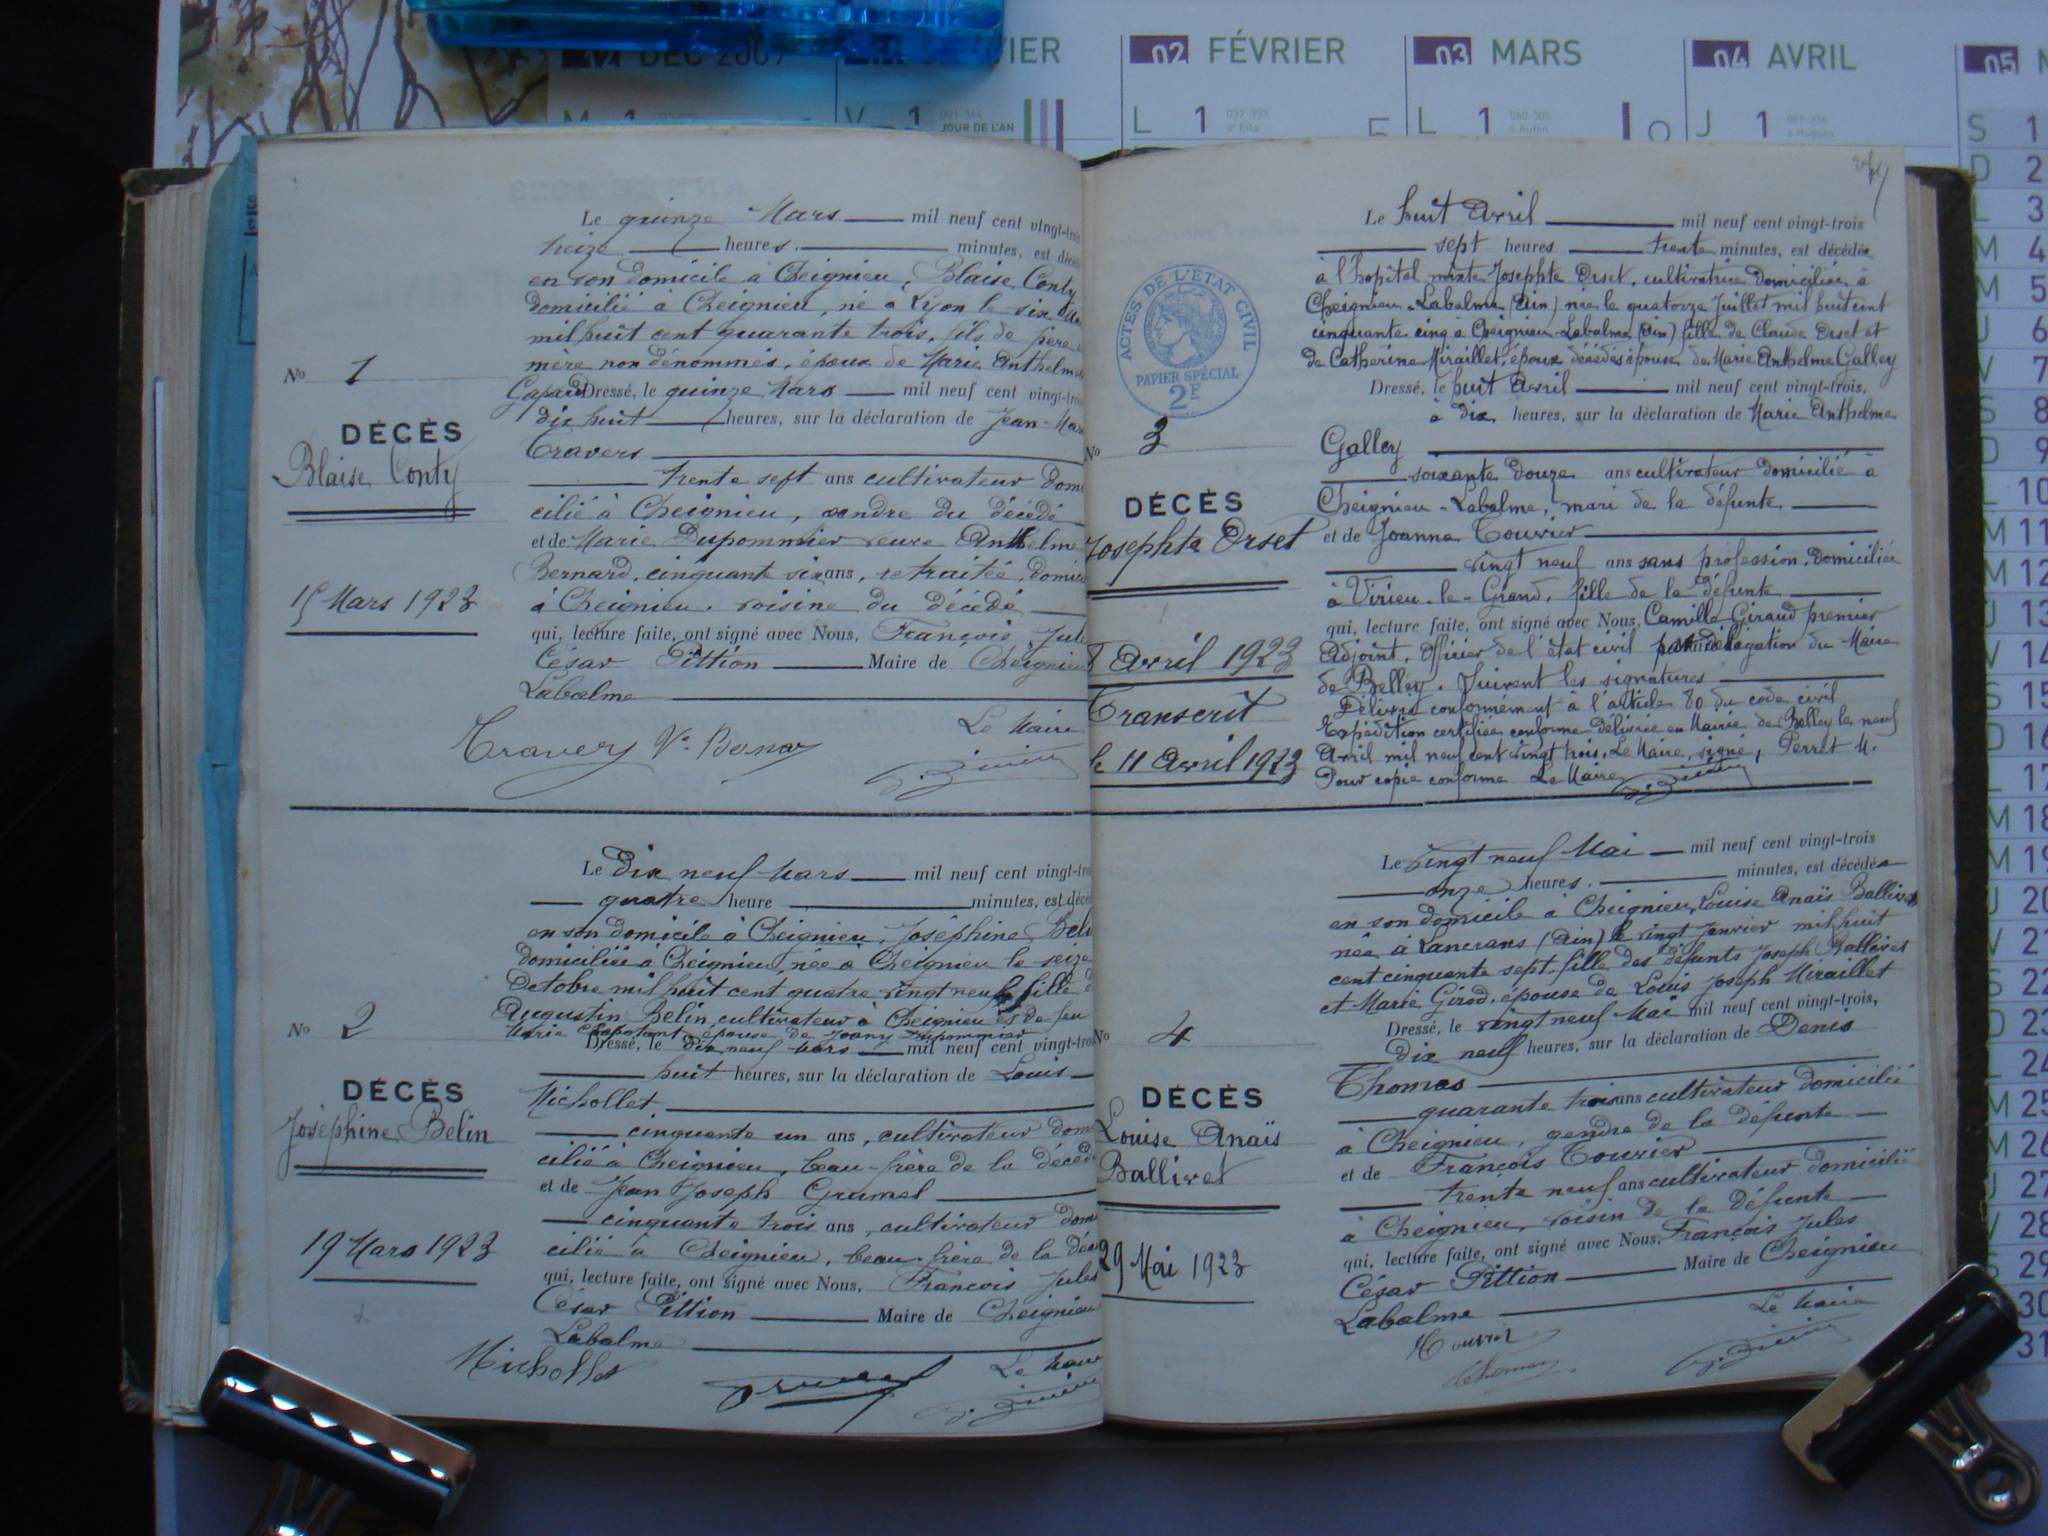 DEC 2009
VIER
02 FÉVRIER
03 MARS
04 AVRIL
05
M 1
V 1
JOUR DE L'AN
L 1
L 1
J 1
S 1
D 2
L 3
M 4
M 5
J 6
V 7
S 8
D 9
L 10
M 11
M 12
J 13
V 14
S 15
D 16
L 17
M 18
M 19
J 20
V 21
S 22
D 23
L 24
M 25
M 26
J 27
V 28
S 29
30
31
Le quinze Mars mil neuf cent vingt-trois
treize heures, minutes, est décédé
en son domicile à Cheignieu, Blaise Conty
domicilié à Cheignieu, né à Lyon le six
mil huit cent quarante trois, fils de père et
mère non dénommés, époux de Marie Anthelme
Gapard Dressé, le quinze Mars mil neuf cent vingt-trois
dix huit heures, sur la déclaration de Jean-Marie
Travers
trente sept ans cultivateur domi
cilié à Cheignieu, gendre du décédé
et de Marie Dupommier veuve Anthelme
Bernard, cinquante six ans, retraitée, domici
à Cheignieu, voisine du décédé
qui, lecture faite, ont signé avec Nous, François Jules
César Pittion Maire de Cheignieu
Labalme
Travers Vve Bernard
Le Maire
No 1
DÉCÈS
Blaise Conty
15 Mars 1923
Le Dix neuf Mars mil neuf cent vingt-trois
quatre heure minutes, est décédé
en son domicile à Cheignieu, Joséphine Belin
domiciliée à Cheignieu, née à Cheignieu le seize
Octobre mil huit cent quatre vingt neuf, fille d
Augustin Belin, cultivateur à Cheignieu et de feu
Marie Chapotant épouse de Joany Dupommier
Dressé, le dix neuf Mars mil neuf cent vingt-trois
huit heures, sur la déclaration de Louis
Michollet
cinquante un ans, cultivateur domi
cilié à Cheignieu, beau-frère de la décédé
et de Jean Joseph Grumel
cinquante trois ans, cultivateur domi
cilié à Cheignieu, beau-frère de la décé
qui, lecture faite, ont signé avec Nous, François Jules
César Pittion Maire de Cheignieu
Labalme
Michollet
Le Maire
No 2
DÉCÈS
Joséphine Belin
19 Mars 1923
Le huit Avril mil neuf cent vingt-trois
sept heures trente minutes, est décédée
à l'hôpital mixte Josephte Orset, cultivatrice domiciliée à
Cheignieu-Labalme (Ain) née le quatorze Juillet mil huit cent
cinquante cinq à Cheignieu-Labalme (Ain) fille de Claude Orset et
de Catherine Miraillet, époux décédés épouse de Marie Anthelme Galley
Dressé, le huit Avril mil neuf cent vingt-trois,
à dix heures, sur la déclaration de Marie Anthelme
Galley
soixante douze ans cultivateur domicilié à
Cheignieu-Labalme, mari de la défunte
et de Joanna Touvier
vingt neuf ans sans profession, domiciliée
à Virieu-le-Grand, fille de la défunte
qui, lecture faite, ont signé avec Nous, Camille Giraud premier
Adjoint, Officier de l'état civil par délégation du Maire
de Belley. Suivent les signatures
Délivré conformément à l'article 80 du code civil
Expédition certifiée conforme délivrée en Mairie de Belley le neuf
Avril mil neuf cent vingt trois. Le Maire, signé, Perret M.
Pour copie conforme Le Maire
ACTES DE L'ÉTAT CIVIL
PAPIER SPÉCIAL
2F
No 3
DÉCÈS
Josephte Orset
8 Avril 1923
Transcrit
le 11 Avril 1923
Le vingt neuf Mai mil neuf cent vingt-trois
onze heures, minutes, est décédée
en son domicile à Cheignieu, Louise Anaïs Ballivet
née à Lancrans (Ain) le vingt Janvier mil huit
cent cinquante sept, fille des défunts Joseph Ballivet
et Marie Girod, épouse de Louis Joseph Miraillet
Dressé, le vingt neuf Mai mil neuf cent vingt-trois,
dix neuf heures, sur la déclaration de Denis
Thomas
quarante trois ans cultivateur domicilié
à Cheignieu, gendre de la défunte
et de François Touvier
trente neuf ans cultivateur domicilié
à Cheignieu, voisin de la défunte
qui, lecture faite, ont signé avec Nous, François Jules
César Pittion Maire de Cheignieu
Labalme
Le Maire
Touvier
Thomas
No 4
DÉCÈS
Louise Anaïs
Ballivet
29 Mai 1923